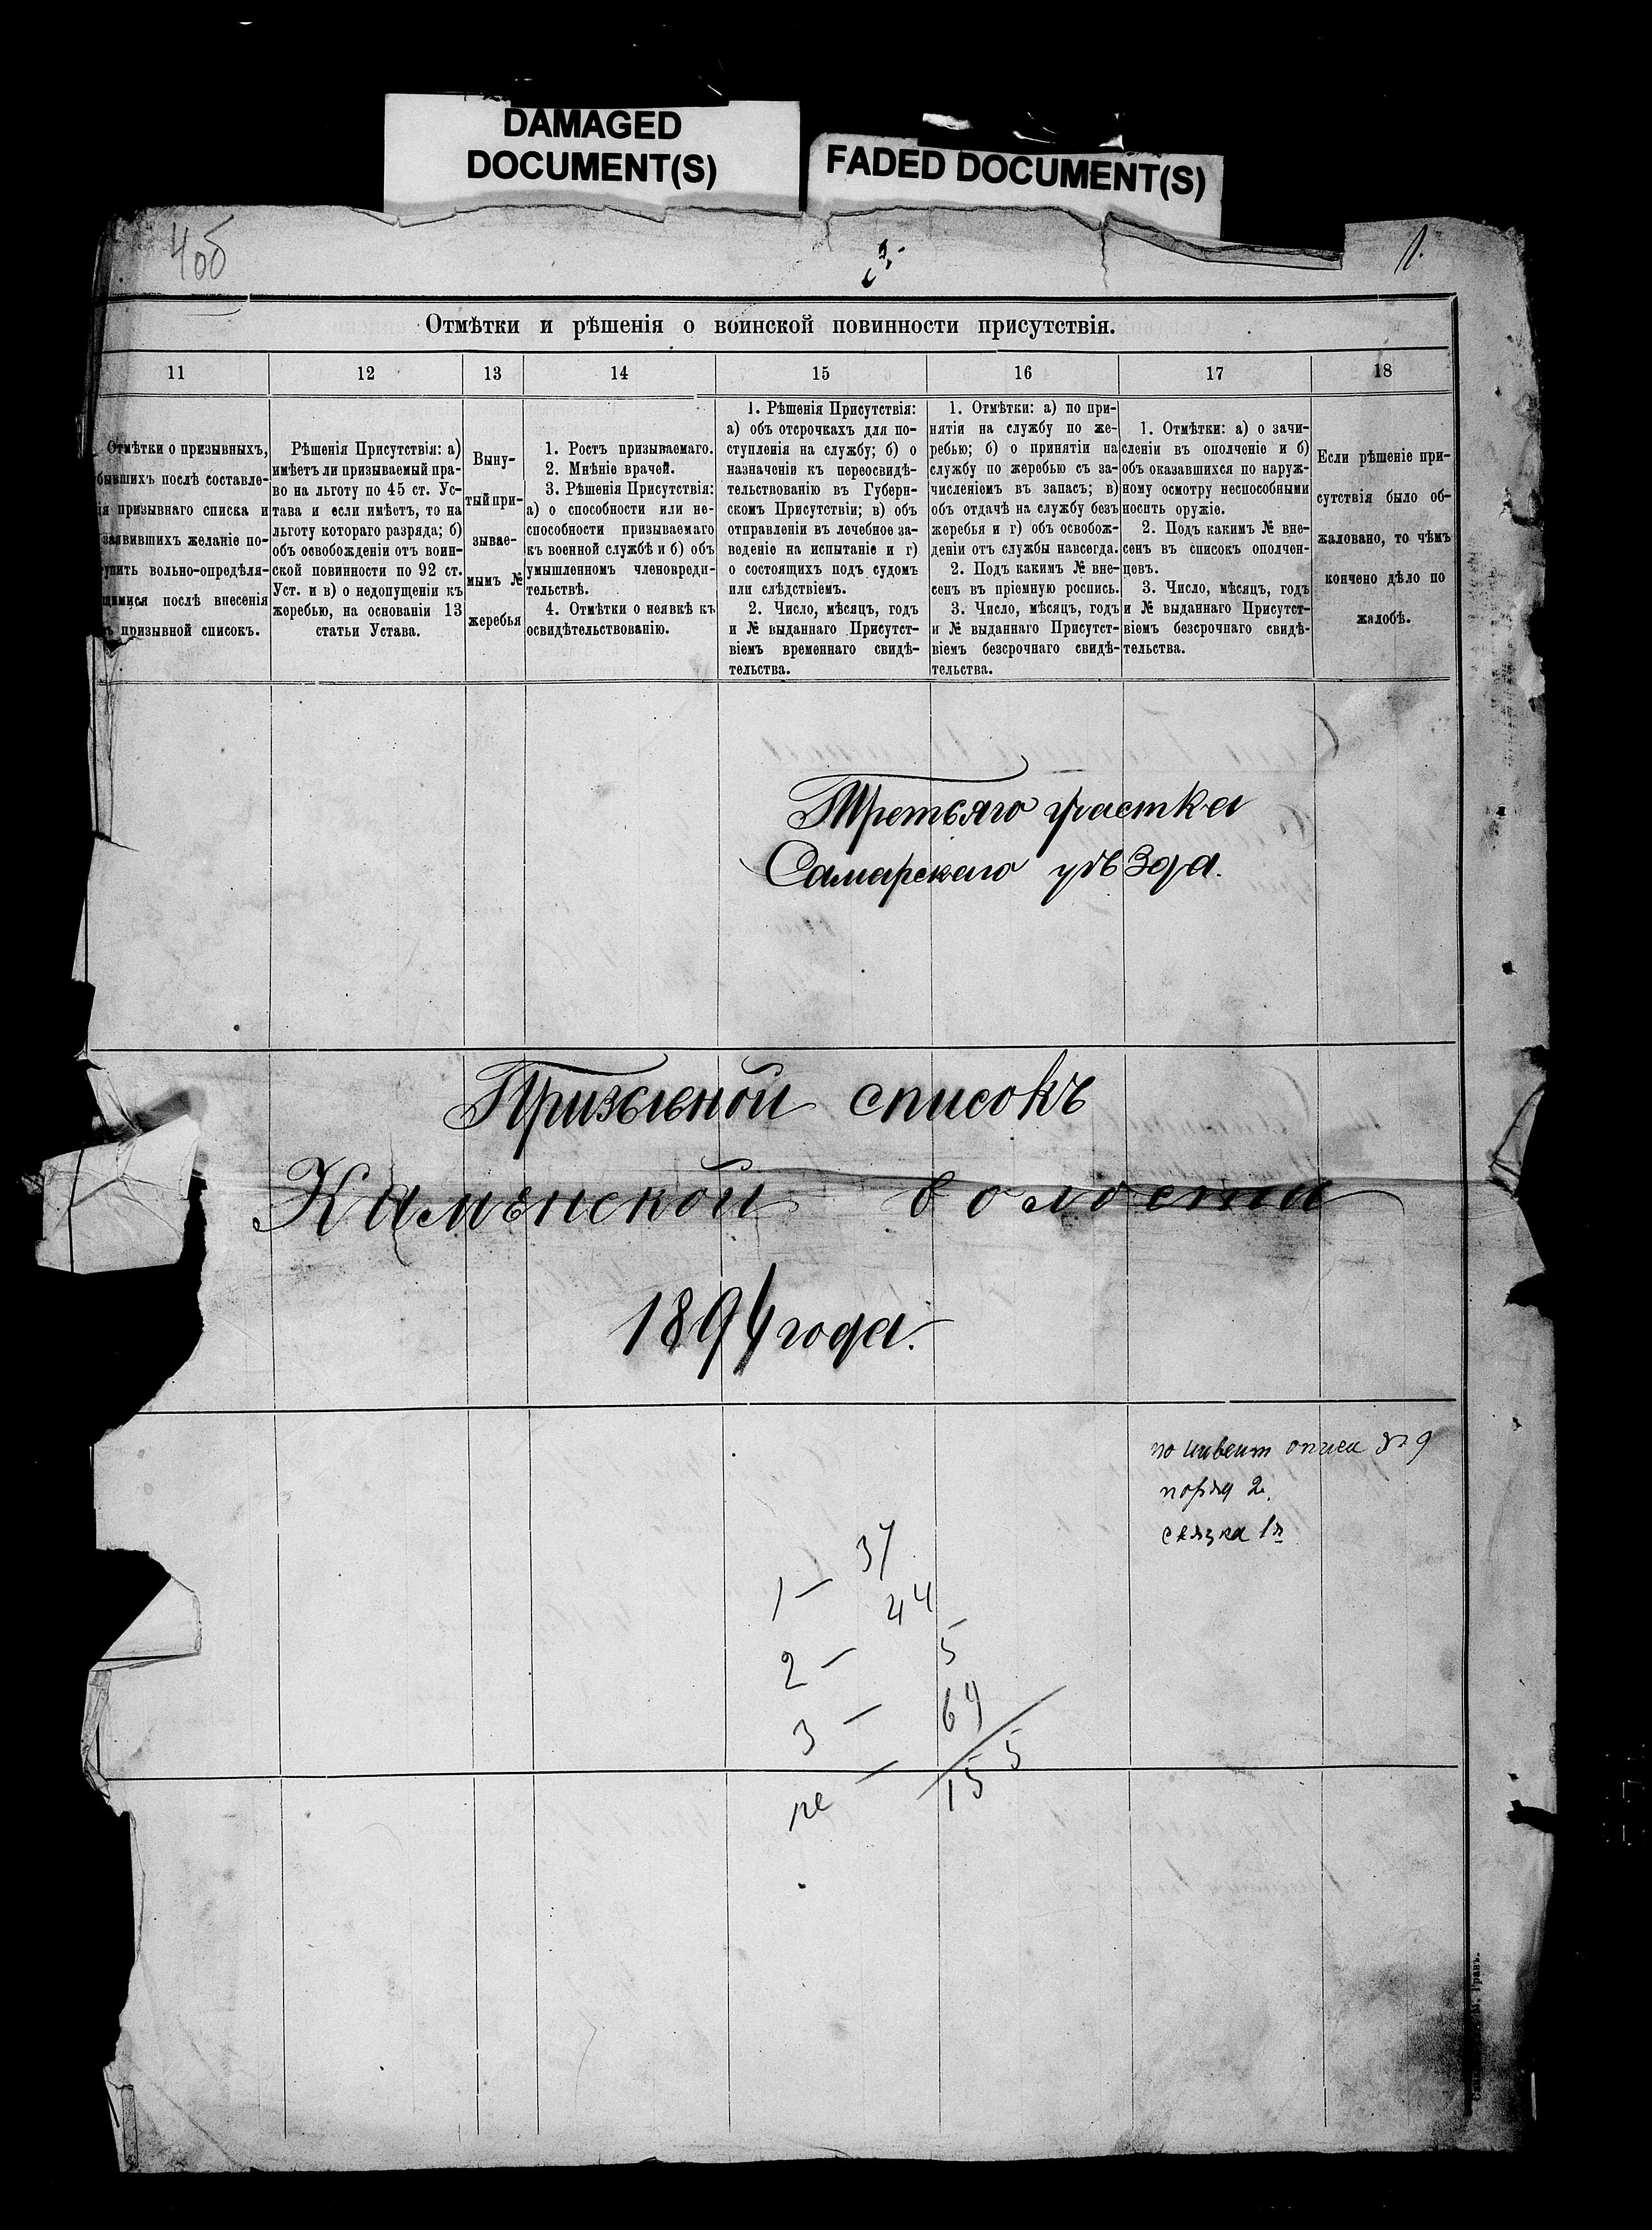 DAMAGED
DOCUMENT(S)
FADED DOCUMENT(S)
1.
Отмѣтки и рѣшенія о воинской повинности присутствія.
11
12
13
14
15
16
17
18
Отмѣтки о призывныхъ,
бывшихъ послѣ составле-
ія призывнаго списка и
заявившихъ желаніе по-
тупить вольно-опредѣля-
щимися послѣ внесенія
ъ призывной списокъ.
Рѣшенія Присутствія: а)
имѣетъ ли призываемый пра-
во на льготу по 45 ст. Ус-
тава и если имѣетъ, то на
льготу котораго разряда; б)
объ освобожденіи отъ воин-
ской повинности по 92 ст.
Уст. и в) о недопущеніи къ
жеребью, на основаніи 13
статьи Устава.
Выну-
тый при-
зывае-
мымъ №
жеребья
1. Ростъ призываемаго.
2. Мнѣніе врачей.
3. Рѣшенія Присутствія:
а) о способности или не-
способности призываемаго
къ военной службѣ и б) объ
умышленномъ членовреди-
тельствѣ.
4. Отмѣтки о неявкѣ къ
освидѣтельствованію.
1. Рѣшенія Присутствія:
а) объ отсрочкахъ для по-
ступленія на службу; б) о
назначеніи къ переосвидѣ-
тельствованію въ Губерн-
скомъ Присутствіи; в) объ
отправленіи въ лечебное за-
веденіе на испытаніе и г)
о состоящихъ подъ судомъ
или слѣдствіемъ.
2. Число, мѣсяцъ, годъ
и № выданнаго Присутст-
віемъ временнаго свидѣ-
тельства.
1. Отмѣтки: а) по при-
нятіи на службу по же-
ребью; б) о принятіи на
службу по жеребью съ за-
численіемъ въ запасъ; в)
объ отдачѣ на службу безъ
жеребья и г) объ освобож-
деніи отъ службы навсегда.
2. Подъ какимъ № вне-
сенъ въ пріемную роспись.
3. Число, мѣсяцъ, годъ
и № выданнаго Присутст-
віемъ безсрочнаго свидѣ-
тельства.
1. Отмѣтки: а) о зачи-
сленіи въ ополченіе и б)
объ оказавшихся по наруж-
ному осмотру неспособными
носить оружіе.
2. Подъ какимъ № вне-
сенъ въ списокъ ополчен-
цевъ.
3. Число, мѣсяцъ, годъ
и № выданнаго Присутст-
віемъ безсрочнаго свидѣ-
тельства.
Если рѣшеніе при-
сутствія было об-
жаловано, то чѣмъ
кончено дѣло по
жалобѣ.
Третьяго участка
Самарскаго уѣзда.
Призывной списокъ
Каменской волости
1894 года.
по инвент описи № 9
поряд 2.
связка 1я
1 — 37
2 — 44
3 — 5
не — 69
155